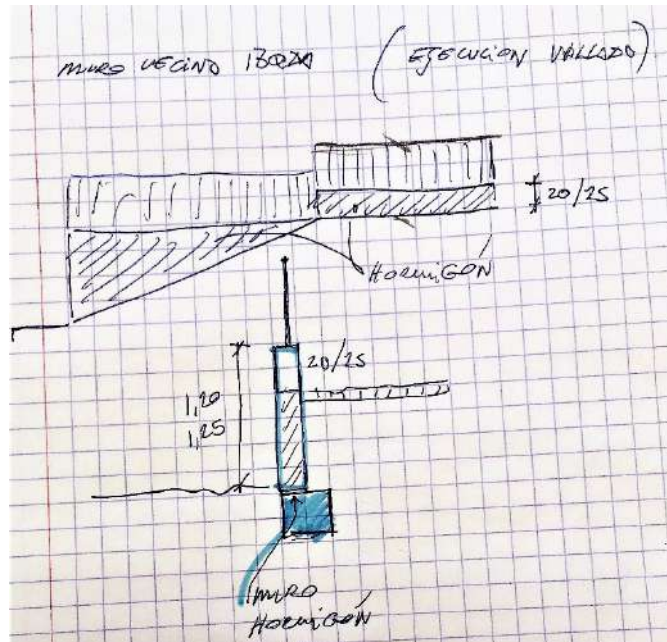 MURO VECINO
(EJECUCION VALLADO)
20/25
HORMIGÓN
20/25
1,20
1,25
MURO
HORMIGÓN